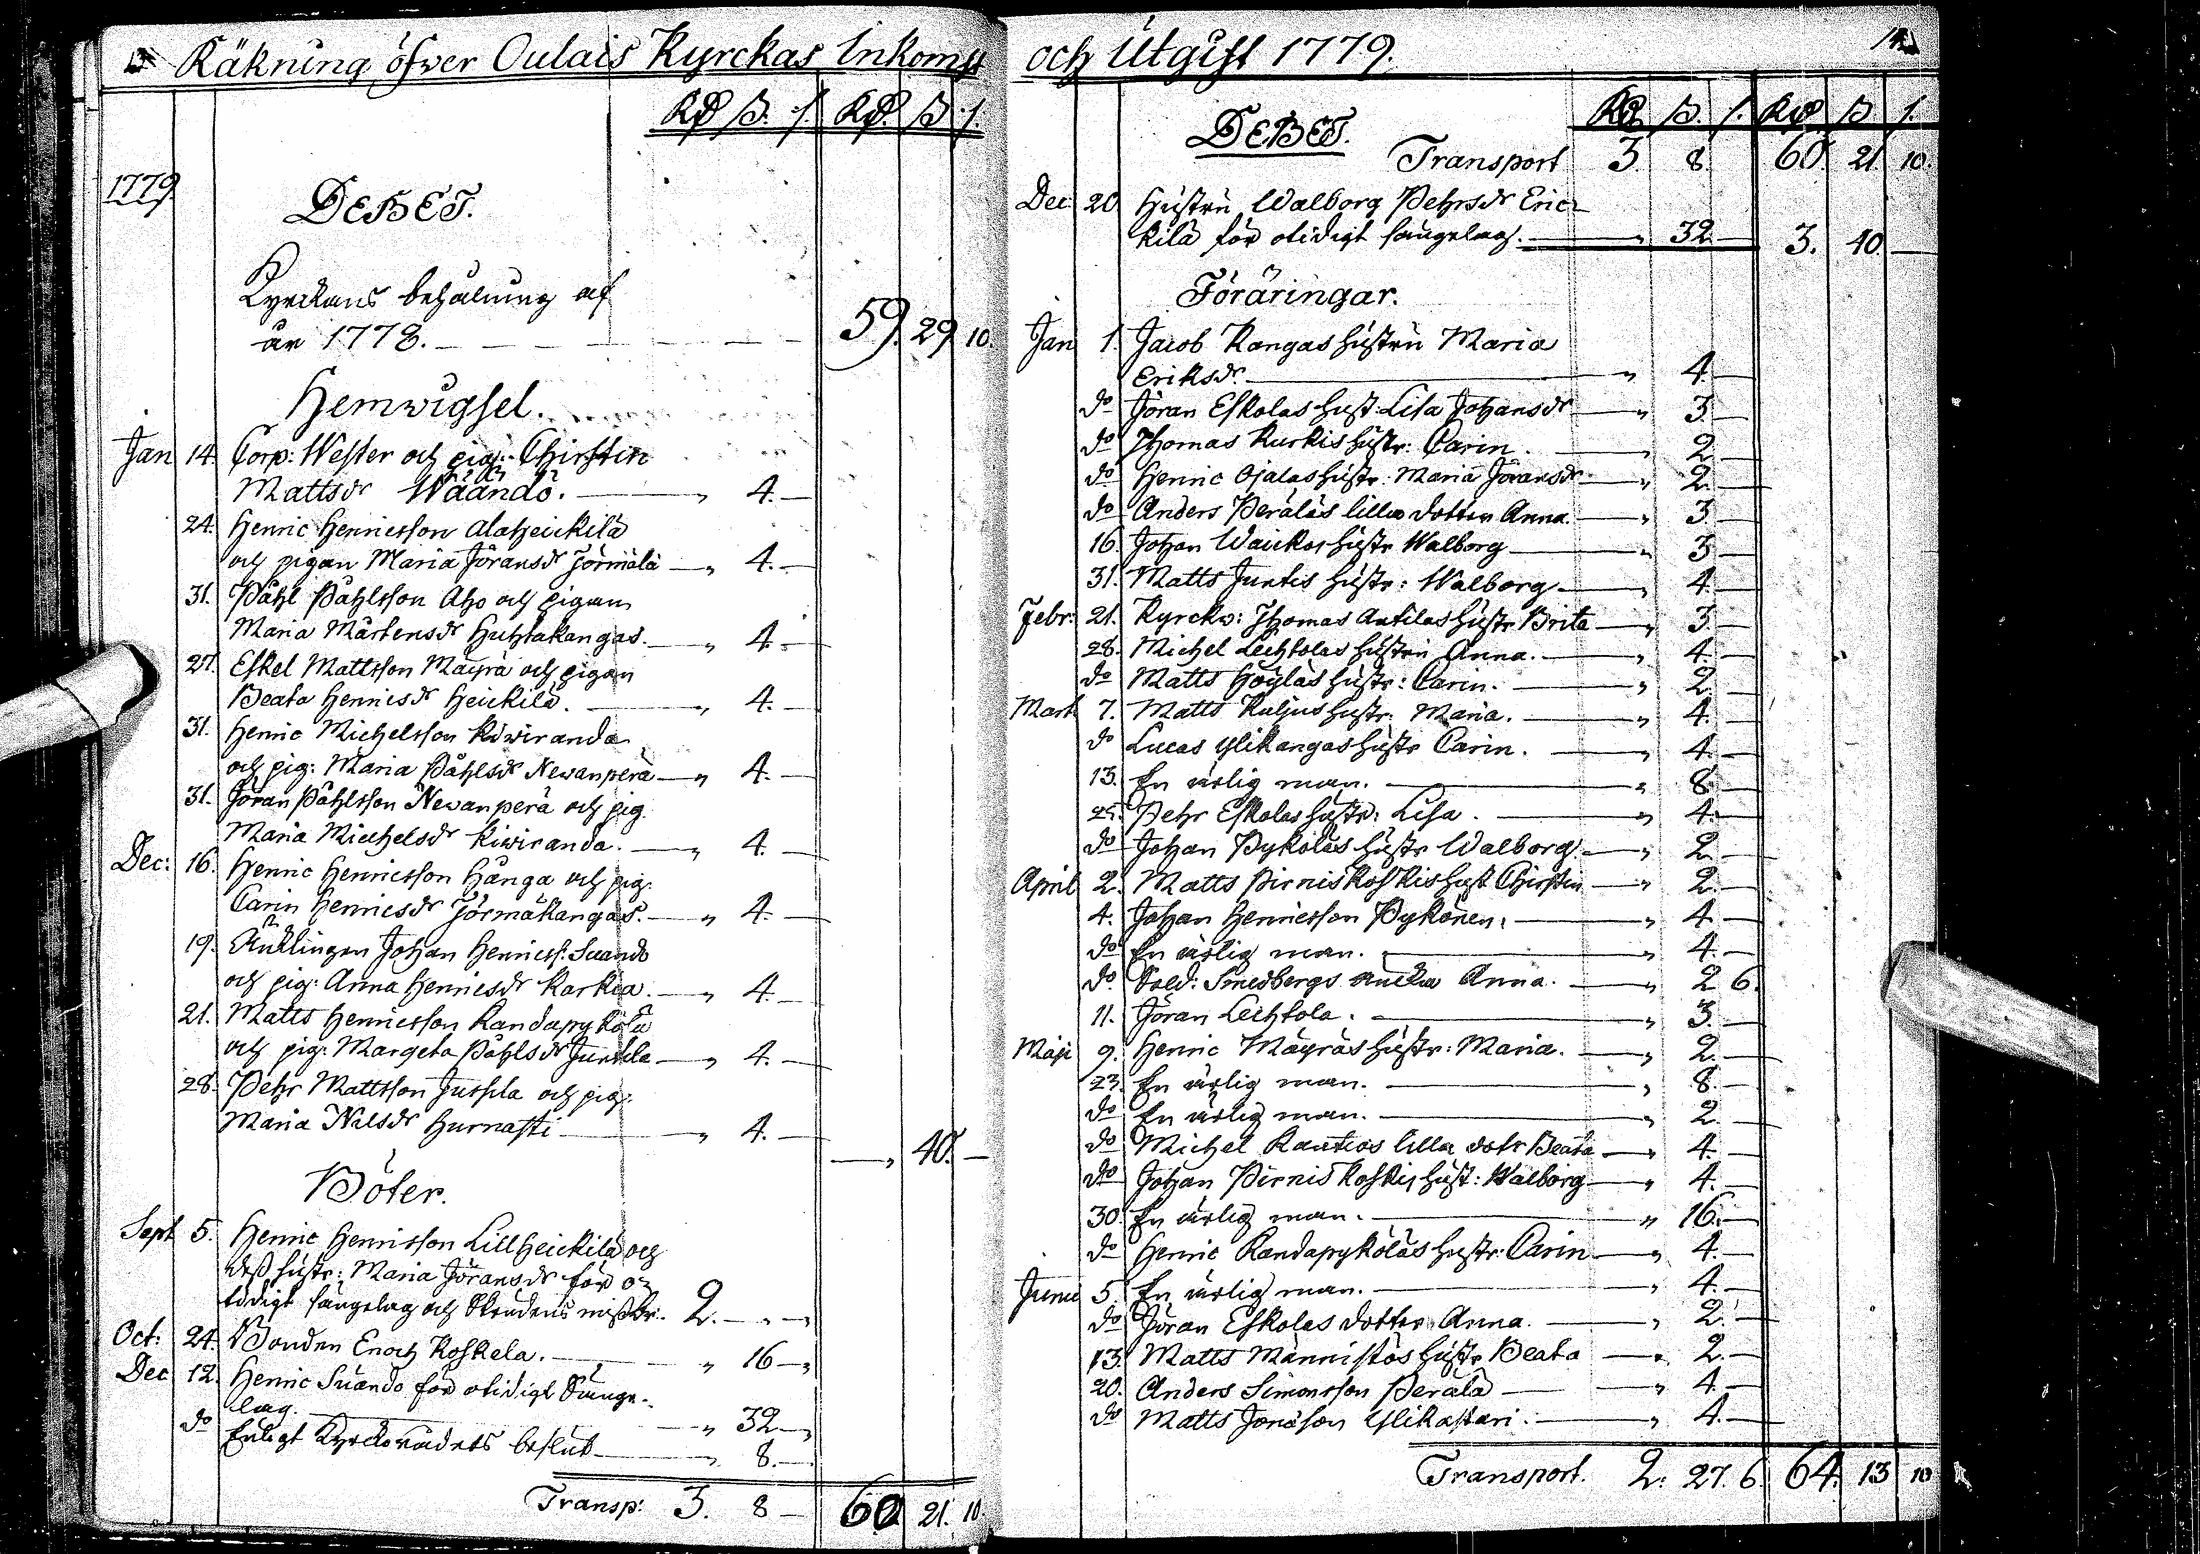 Räkning öfwer Oulais Kyrckas Inkomst
Rd ß. /. Rd. ß /.
1779.
DEBET.
Kyrckans behålning af
år 1778. 59. 29 10.
Hemwigsel.
Jan 14. Corp: Wester och pig: Chirstin
Mattsdr Wäändö. " 4. —
24. Henric Henricsson Alaheickilä
och pigan Maria Jöransdr Jörmälä " 4. —
31. Påhl Påhlsson Aho och pigan
Maria Mårtensdr Huhtakangas. " 4. —
27. Eskel Mattsson Mäyrä och pigan
Beata Henricsdr Heickilä. " 4. —
31. Henric Michelsson Kiwiranda
och pig: Maria Påhlsdr Newanperä " 4. —
31. Jöran Påhlsson Newanperä och pig.
Maria Michelsdr Kiwiranda. " 4. —
Dec: 16. Henric Henricsson Hånga och pig.
Carin Henricsdr Jörmäkangas. " 4. —
19. Änklingen Johan Henricss: Suando
och pig: Anna Henricsdr Karkia. " 4. —
21. Matts Henricsson Randapyköla
och pig: Margeta Påhlsdr Juntila " 4. —
28. Pehr Mattsson Jussila och pig:
Maria Nilsdr Hurnasti " 4. —
" 40. —
Böter.
Sept 5. Henric Henrisson Lillheickilä och
dess hustr: Maria Jöransdr för o-
tidigt sängelag och Skrudens missbr: 2. — —
Oct: 24. Bonden Enoch Koskela. " 16 —
Dec 12. Henric Suando för otidigt Sänge-
lag. " 32 —
do Enligt Kyrckorådets beslut " 8. —
Transp: 3. 8 — 60 21. 10.
och Utgift 1779. 14
DEBET. Rd ß. /. Rd ß /.
Transport 3 8. 60. 21. 10.
Dec: 20 Hustru Walborg Pehrsdr Eric-
kilä för otidigt sängelag. " 32 — 3. 40. —
Föräringar.
Jan 1. Jacob Kangas hustru Maria
Eriksdr. " 4. —
do Jöran Eskolas hust: Lisa Johansdr " 3. —
do Thomas Kurkis hustr: Carin. " 2 —
do Henric Ojalas hustr: Maria Jöransdr " 2. —
do Anders Peräläs lilla dotter Anna. " 3. —
16. Johan Wäickos hustr Walborg " 3 —
31. Matts Juntis hustr: Walborg " 4. —
Febr: 21. Kyrckw: Thomas Antilas hustr Brita " 3. —
28. Michel Lechtolas hustru Anna. " 4. —
do Matts Höyläs hustr: Carin. " 2. —
Mart 7. Matts Kuljus hustr: Maria. " 4. —
do Lucas Ylikangas hustr Carin. " 4. —
13. En ärlig man. " 8. —
25. Pehr Eskolas hustr: Lisa. " 4. —
do Johan Pyköläs hustr Walborg. " 2. —
April 2. Matts Pirniskoskis hust Chirstin " 2. —
4. Johan Henricsson Pykönen. " 4. —
do En ärlig man. " 4. —
do Sold: Smedbergs Anna. " 2 6.
11. Jöran Lechtola. " 3. —
Maji 9. Henric Mäyräs hustr: Maria. " 2. —
23. En ärlig man. " 8. —
do En ärlig man. " 2. —
do Michel Rautios lilla dotr Beata " 4. —
do Johan Pirniskoskis hust: Walborg " 4. —
30. En ärlig man. " 16. —
do Henric Randapyköläs hustr: Carin " 4. —
Junii 5. En ärlig man. " 4. —
do Jöran Eskolas dotter Anna. " 2. —
13. Matts Männistös hustr Beata " 2. —
20. Anders Simonsson Perälä " 4. —
do Matts Jonäson Ylikastari. " 4. —
Transport. 2. 27. 6. 64. 13 10